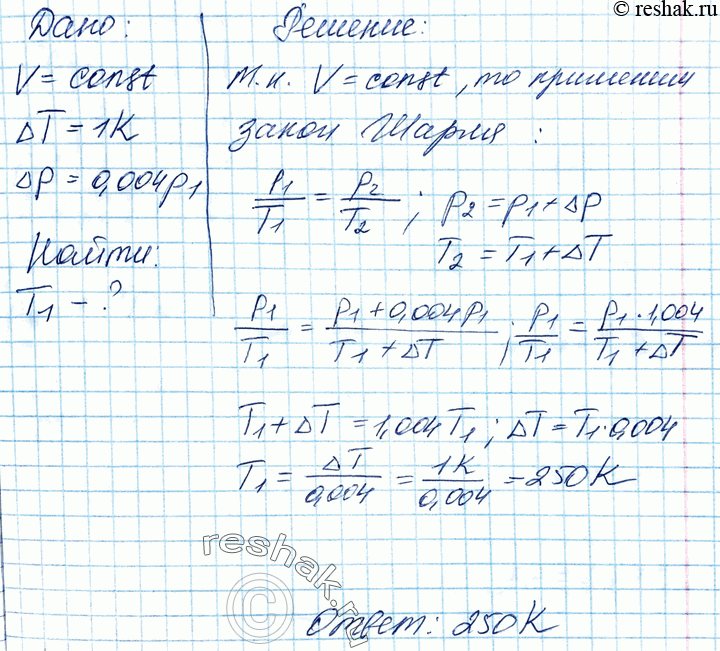 © reshak.ru
Дано:
V = const
ΔT = 1K
Δp = 0,004p₁
Найти:
T₁ – ?
Решение:
т.к. V = const, то применим
закон Шарля :
p₁/T₁ = p₂/T₂ ; p₂ = p₁ + Δp
T₂ = T₁ + ΔT
p₁/T₁ = (p₁ + 0,004p₁)/(T₁ + ΔT) ; p₁/T₁ = (p₁ · 1,004)/(T₁ + ΔT)
T₁ + ΔT = 1,004T₁ ; ΔT = T₁ · 0,004
T₁ = ΔT/0,004 = 1K/0,004 = 250K
reshak.ru
©
Ответ: 250K